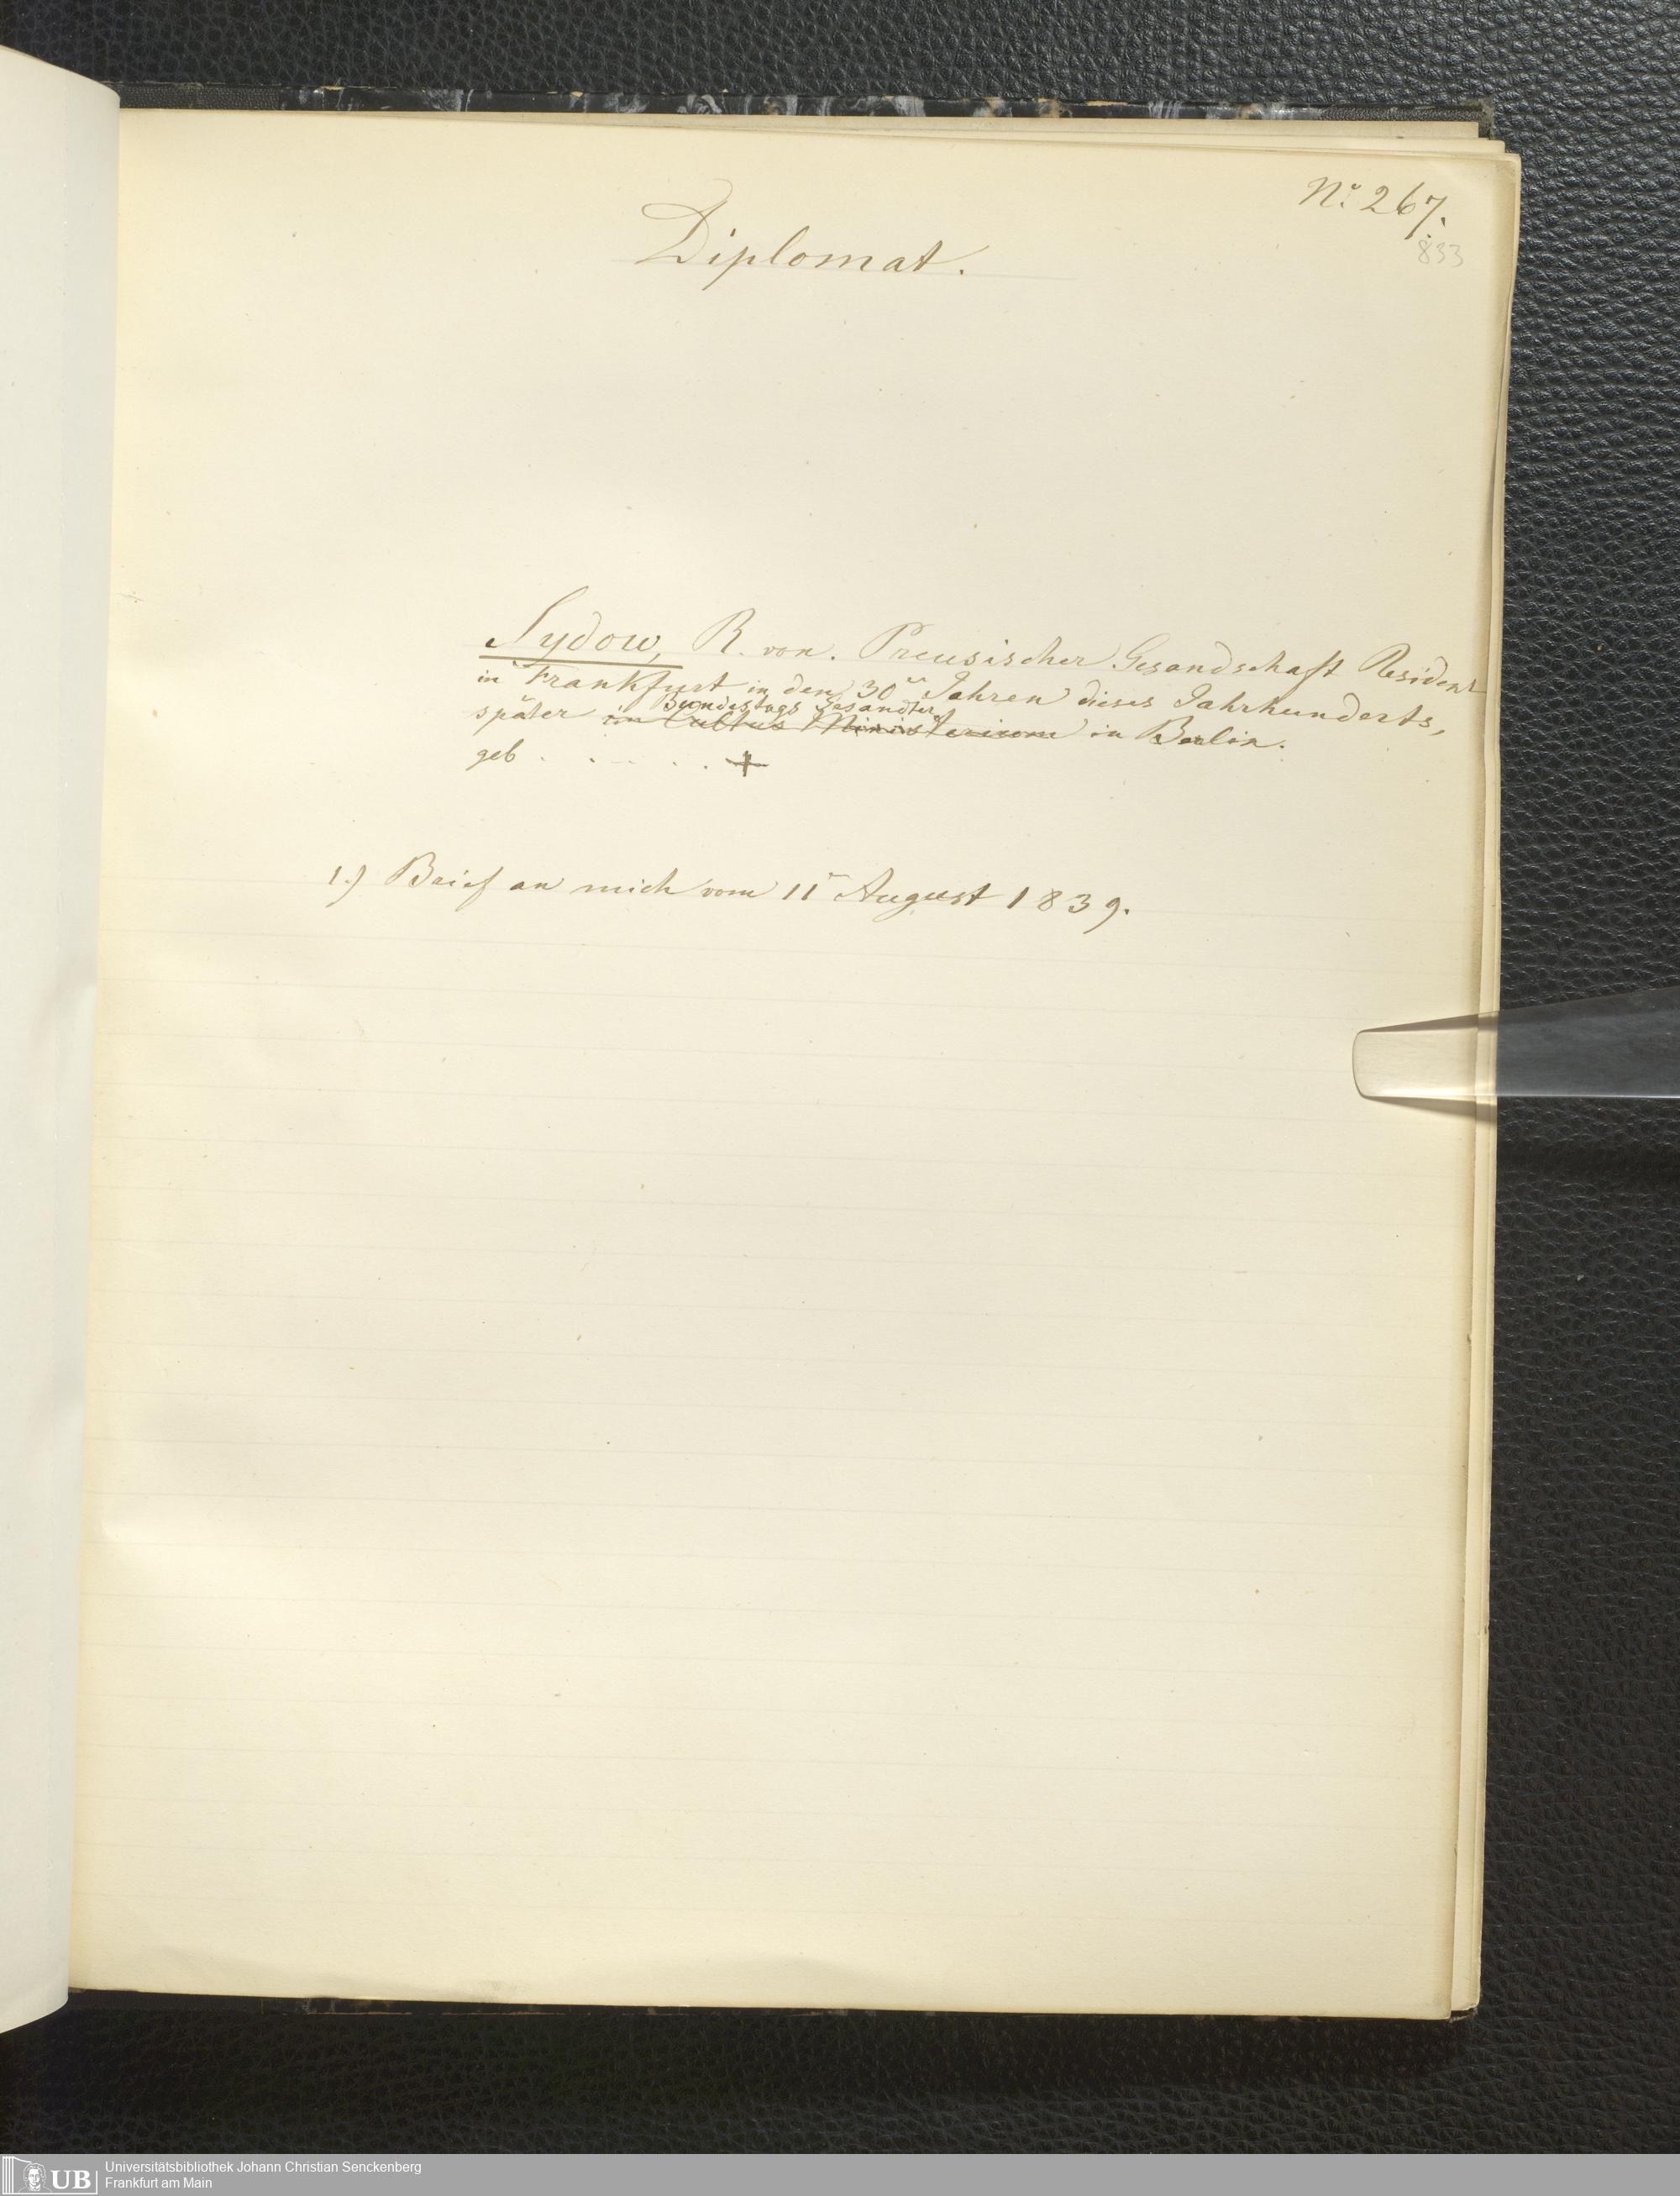 No. 267.
833
Diplomat.
Sydow, R. von. Preusischer Gesandschaft Resident
in Frankfurt in den 30er Jahren dieses Jahrhunderts,
Bundestags Gesandter
später im Cultus Ministerium in Berlin.
geb . . . . . . †
1.) Brief an mich vom 11ten August 1839.
UB
Universitätsbibliothek Johann Christian Senckenberg
Frankfurt am Main